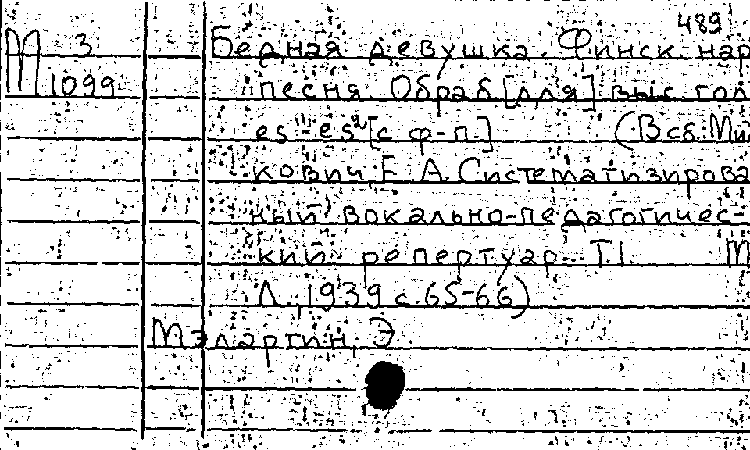 489
М 3 Бедная девушка. Финск. нар
1099 песня. Обраб. [для] выс. гол
es¹-es² [с ф-п.] (В сб: Ми
кович, Е. А. Систематизирова
ный вокально-педагогичес-
кий репертуар. Т. I. М
Л., 1939 с. 65-66)
Мэлартин, Э.